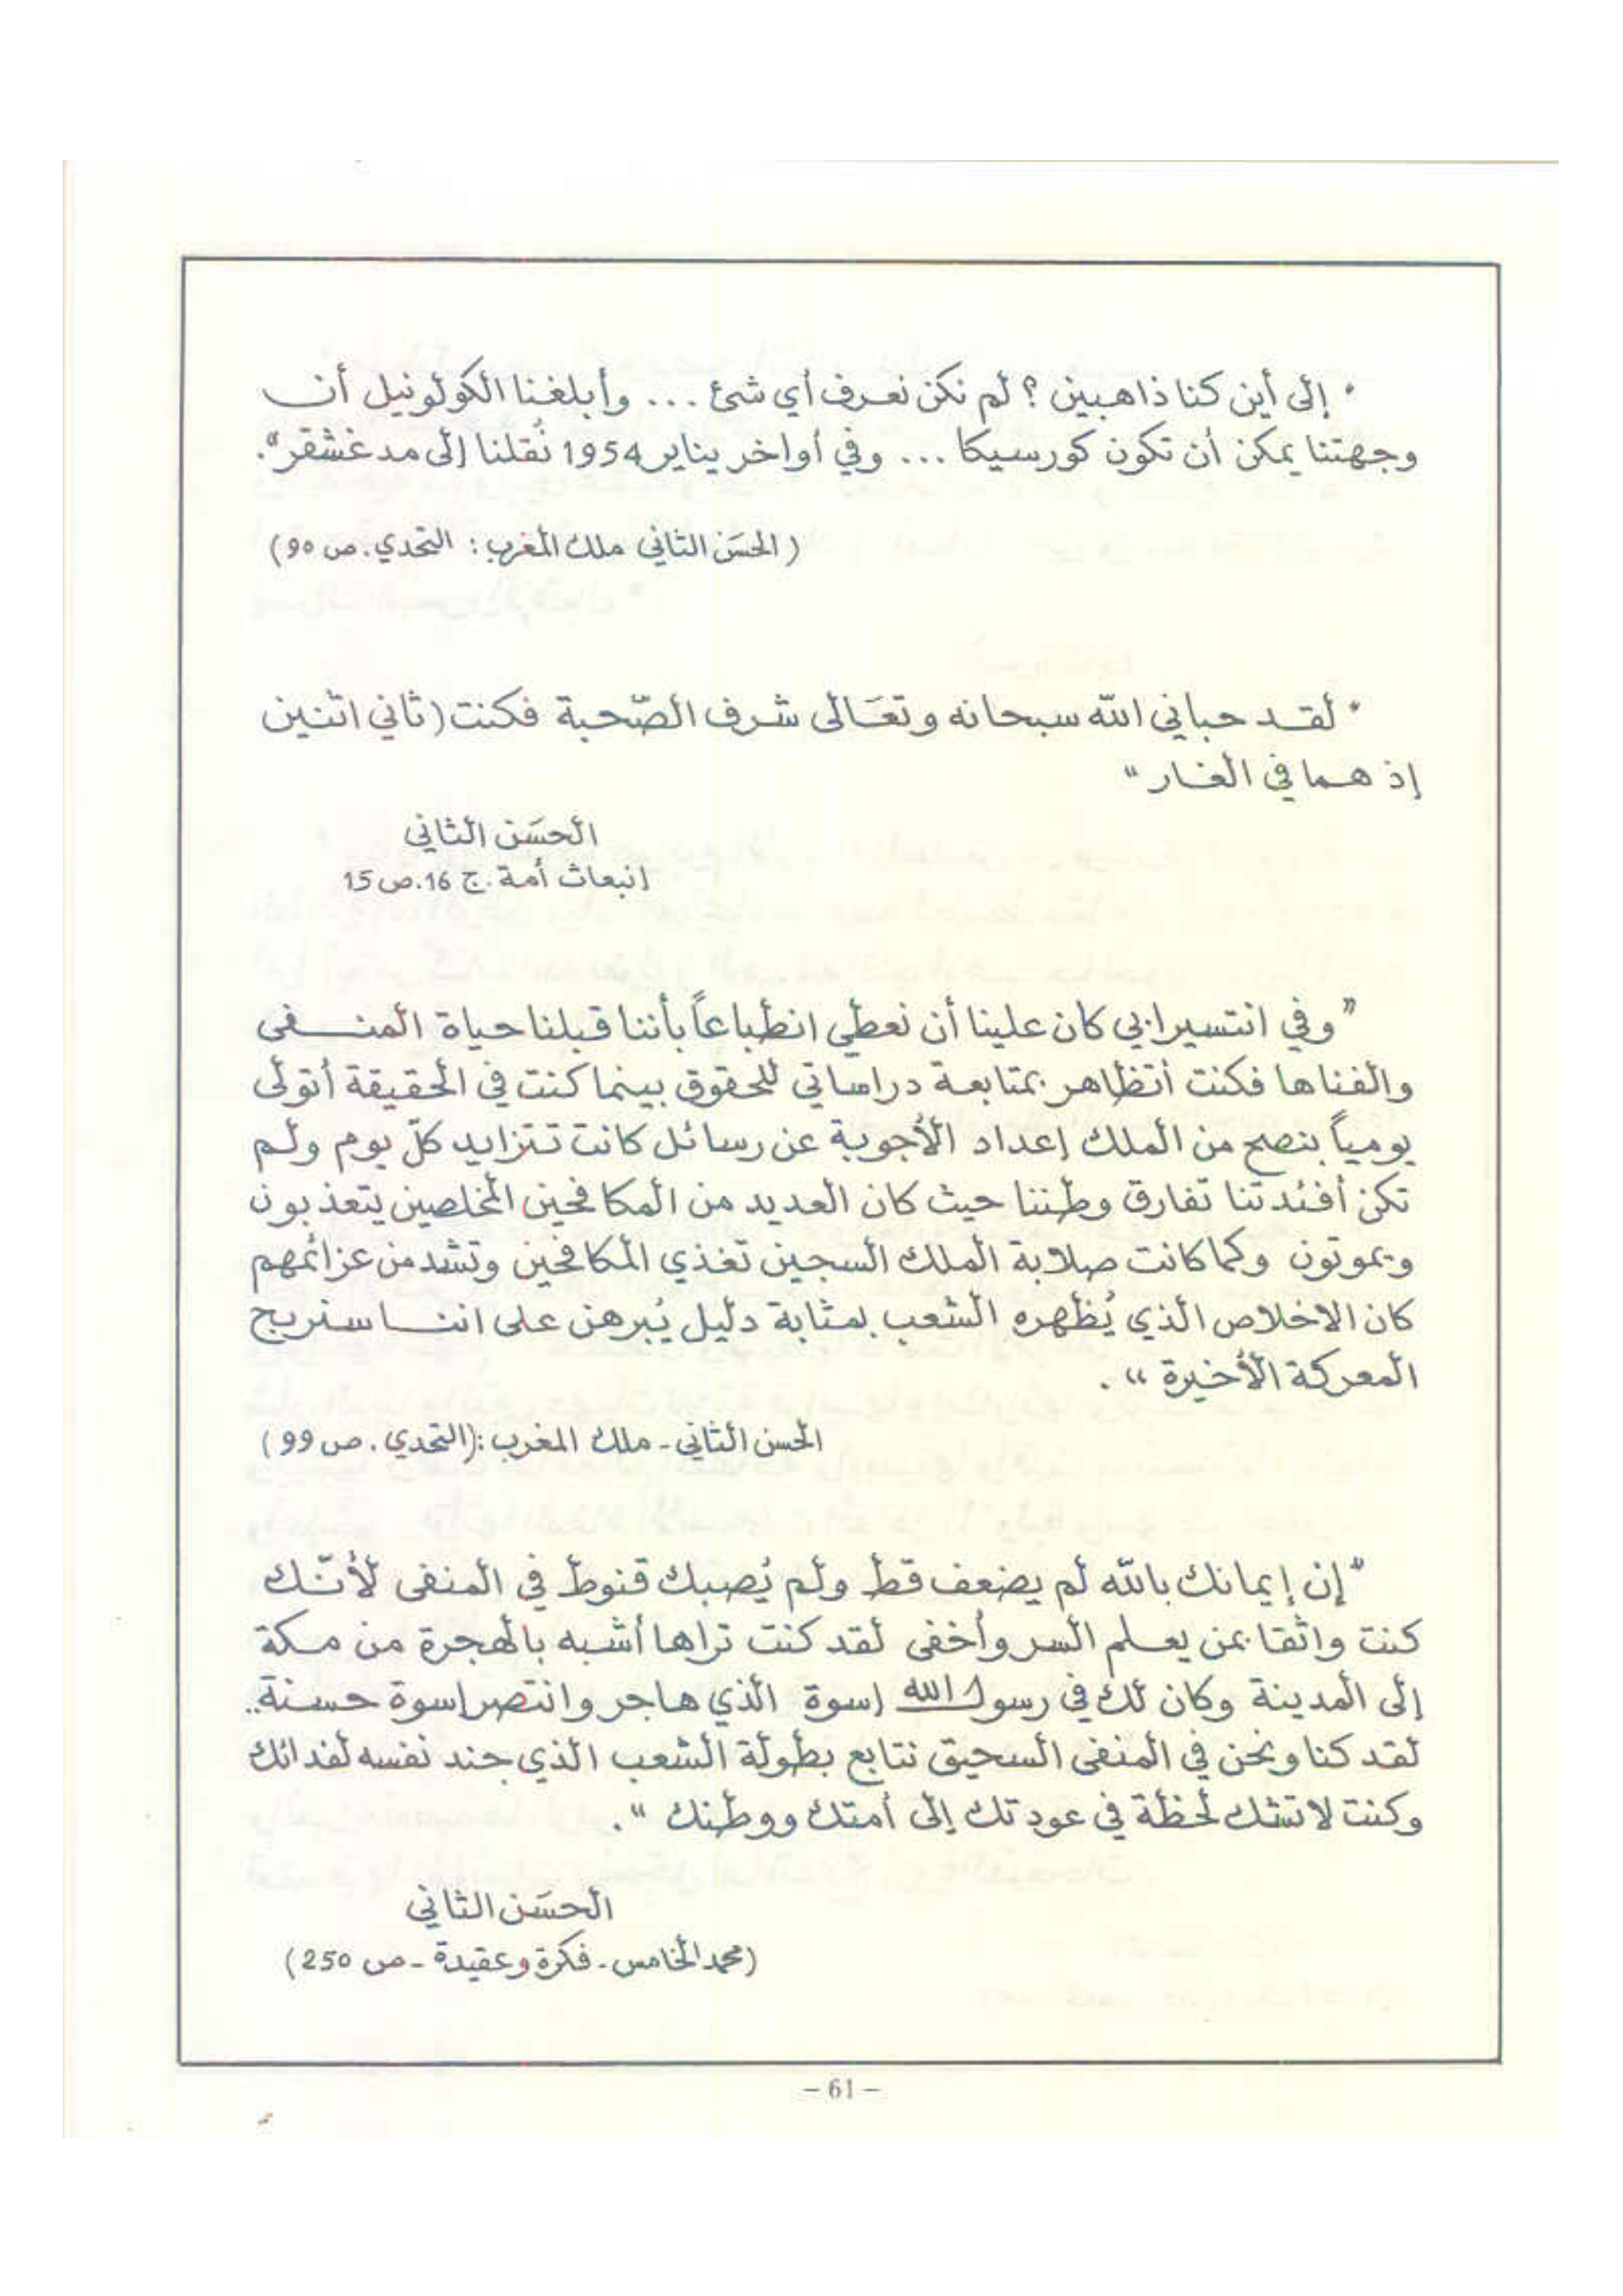 " إلى أين كنا ذاهبين ؟ لم نكن نعرف أي شئ ... وأبلغنا الكولونيل أن
وجهتنا يمكن أن تكون كورسيكا ... وفي أواخر يناير 1954 نُقلنا إلى مدغشقر".
( الحسَن الثاني ملك المغرب : التحدي . ص 90)
" لقد حباني الله سبحانه وتعَالى شرف الصّحبة فكنت (ثاني اثنين
إذ هما في الغار "
الحسَن الثاني
انبعاث أمة . ج 16. ص 15
" وفي انتسيرابي كان علينا أن نعطي انطباعاً بأننا قبلنا حياة المنفى
والفناها فكنت أتظاهر بمتابعة دراساتي للحقوق بينما كنت في الحقيقة أتولى
يومياً بنصح من الملك إعداد الأجوبة عن رسائل كانت تتزايد كلّ يوم ولم
تكن أفئدتنا تفارق وطننا حيث كان العديد من المكافحين المخلصين يتعذبون
ويموتون وكما كانت صلابة الملك السجين تغذي المكافحين وتشد من عزائمهم
كان الاخلاص الذي يُظهره الشعب بمثابة دليل يُبرهن على اننا سنربح
المعركة الأخيرة " .
الحسن الثاني - ملك المغرب :(التحدي . ص 99 )
" إن إيمانك بالله لم يضعف قط ولم يُصبك قنوط في المنفى لأنّك
كنت واثقا بمن يعلم السر وأخفى لقد كنت تراها أشبه بالهجرة من مكة
إلى المدينة وكان لك في رسول الله إسوة الذي هاجر وانتصر إسوة حسنة..
لقد كنا ونحن في المنفى السحيق نتابع بطولة الشعب الذي جند نفسه لفدائك
وكنت لا تشك لحظة في عودتك إلى أمتك ووطنك " .
الحسَن الثاني
(محمد الخامس - فكرة وعقيدة - ص 250)
– 61 –